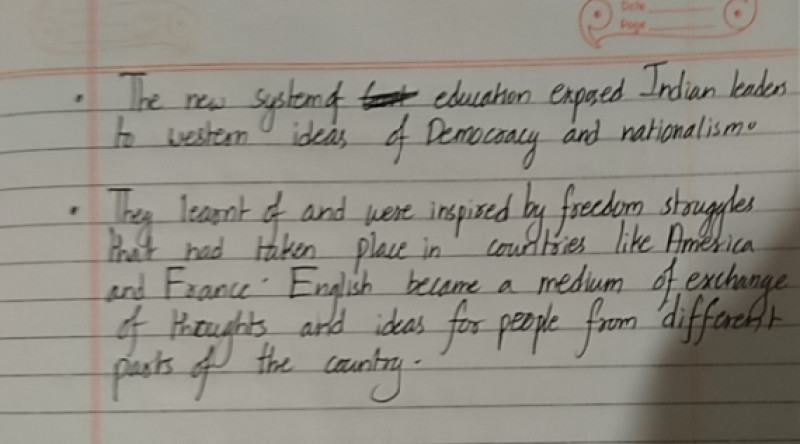 Date
Page
• The new system of education exposed Indian leaders
to western ideas of Democracy and nationalism.
• They learnt of and were inspired by freedom struggles
that had taken place in countries like America
and France. English became a medium of exchange
of thoughts and ideas for people from different
parts of the country.